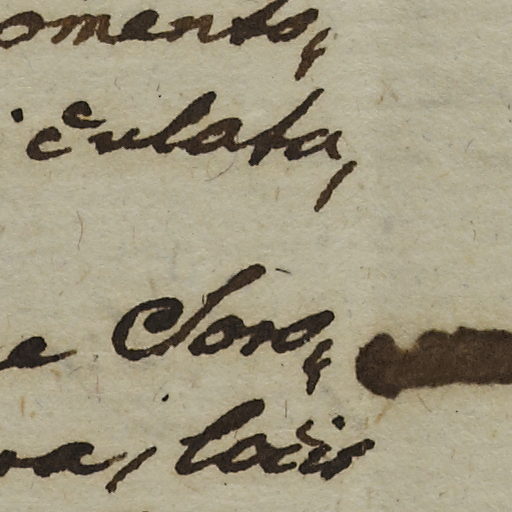 omento,
iculata,
e Coro,
ra, locis